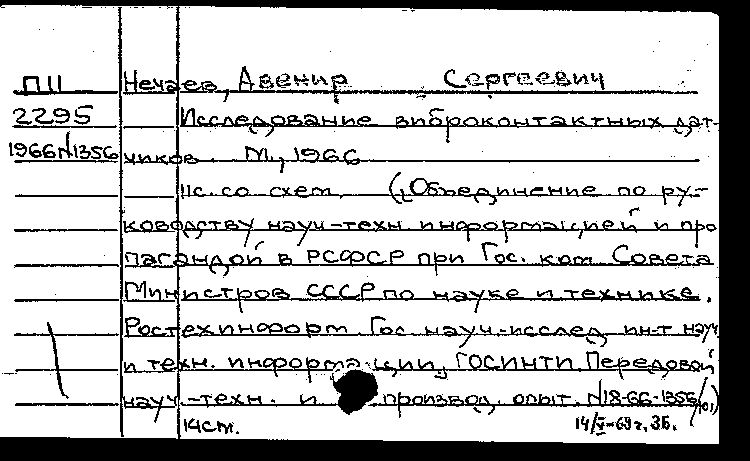 ПII Нечаев, Авенир Сергеевич
2295 Исследование виброконтактных дат-
1966N1356 чиков. М., 1966
11с. со схем. (Объединение по ру-
ководству науч-техн. информацией и про
пагандой в РСФСР при Гос. ком Совета
Министров СССР по науке и технике.
Ростехинформ. Гос науч-исслед. ин-т науч
и техн. информации, ГОСИНТИ. Передовой
науч-техн. и производ. опыт. N18-66-1356/101)
14см. 14/V-69г. ЗБ.